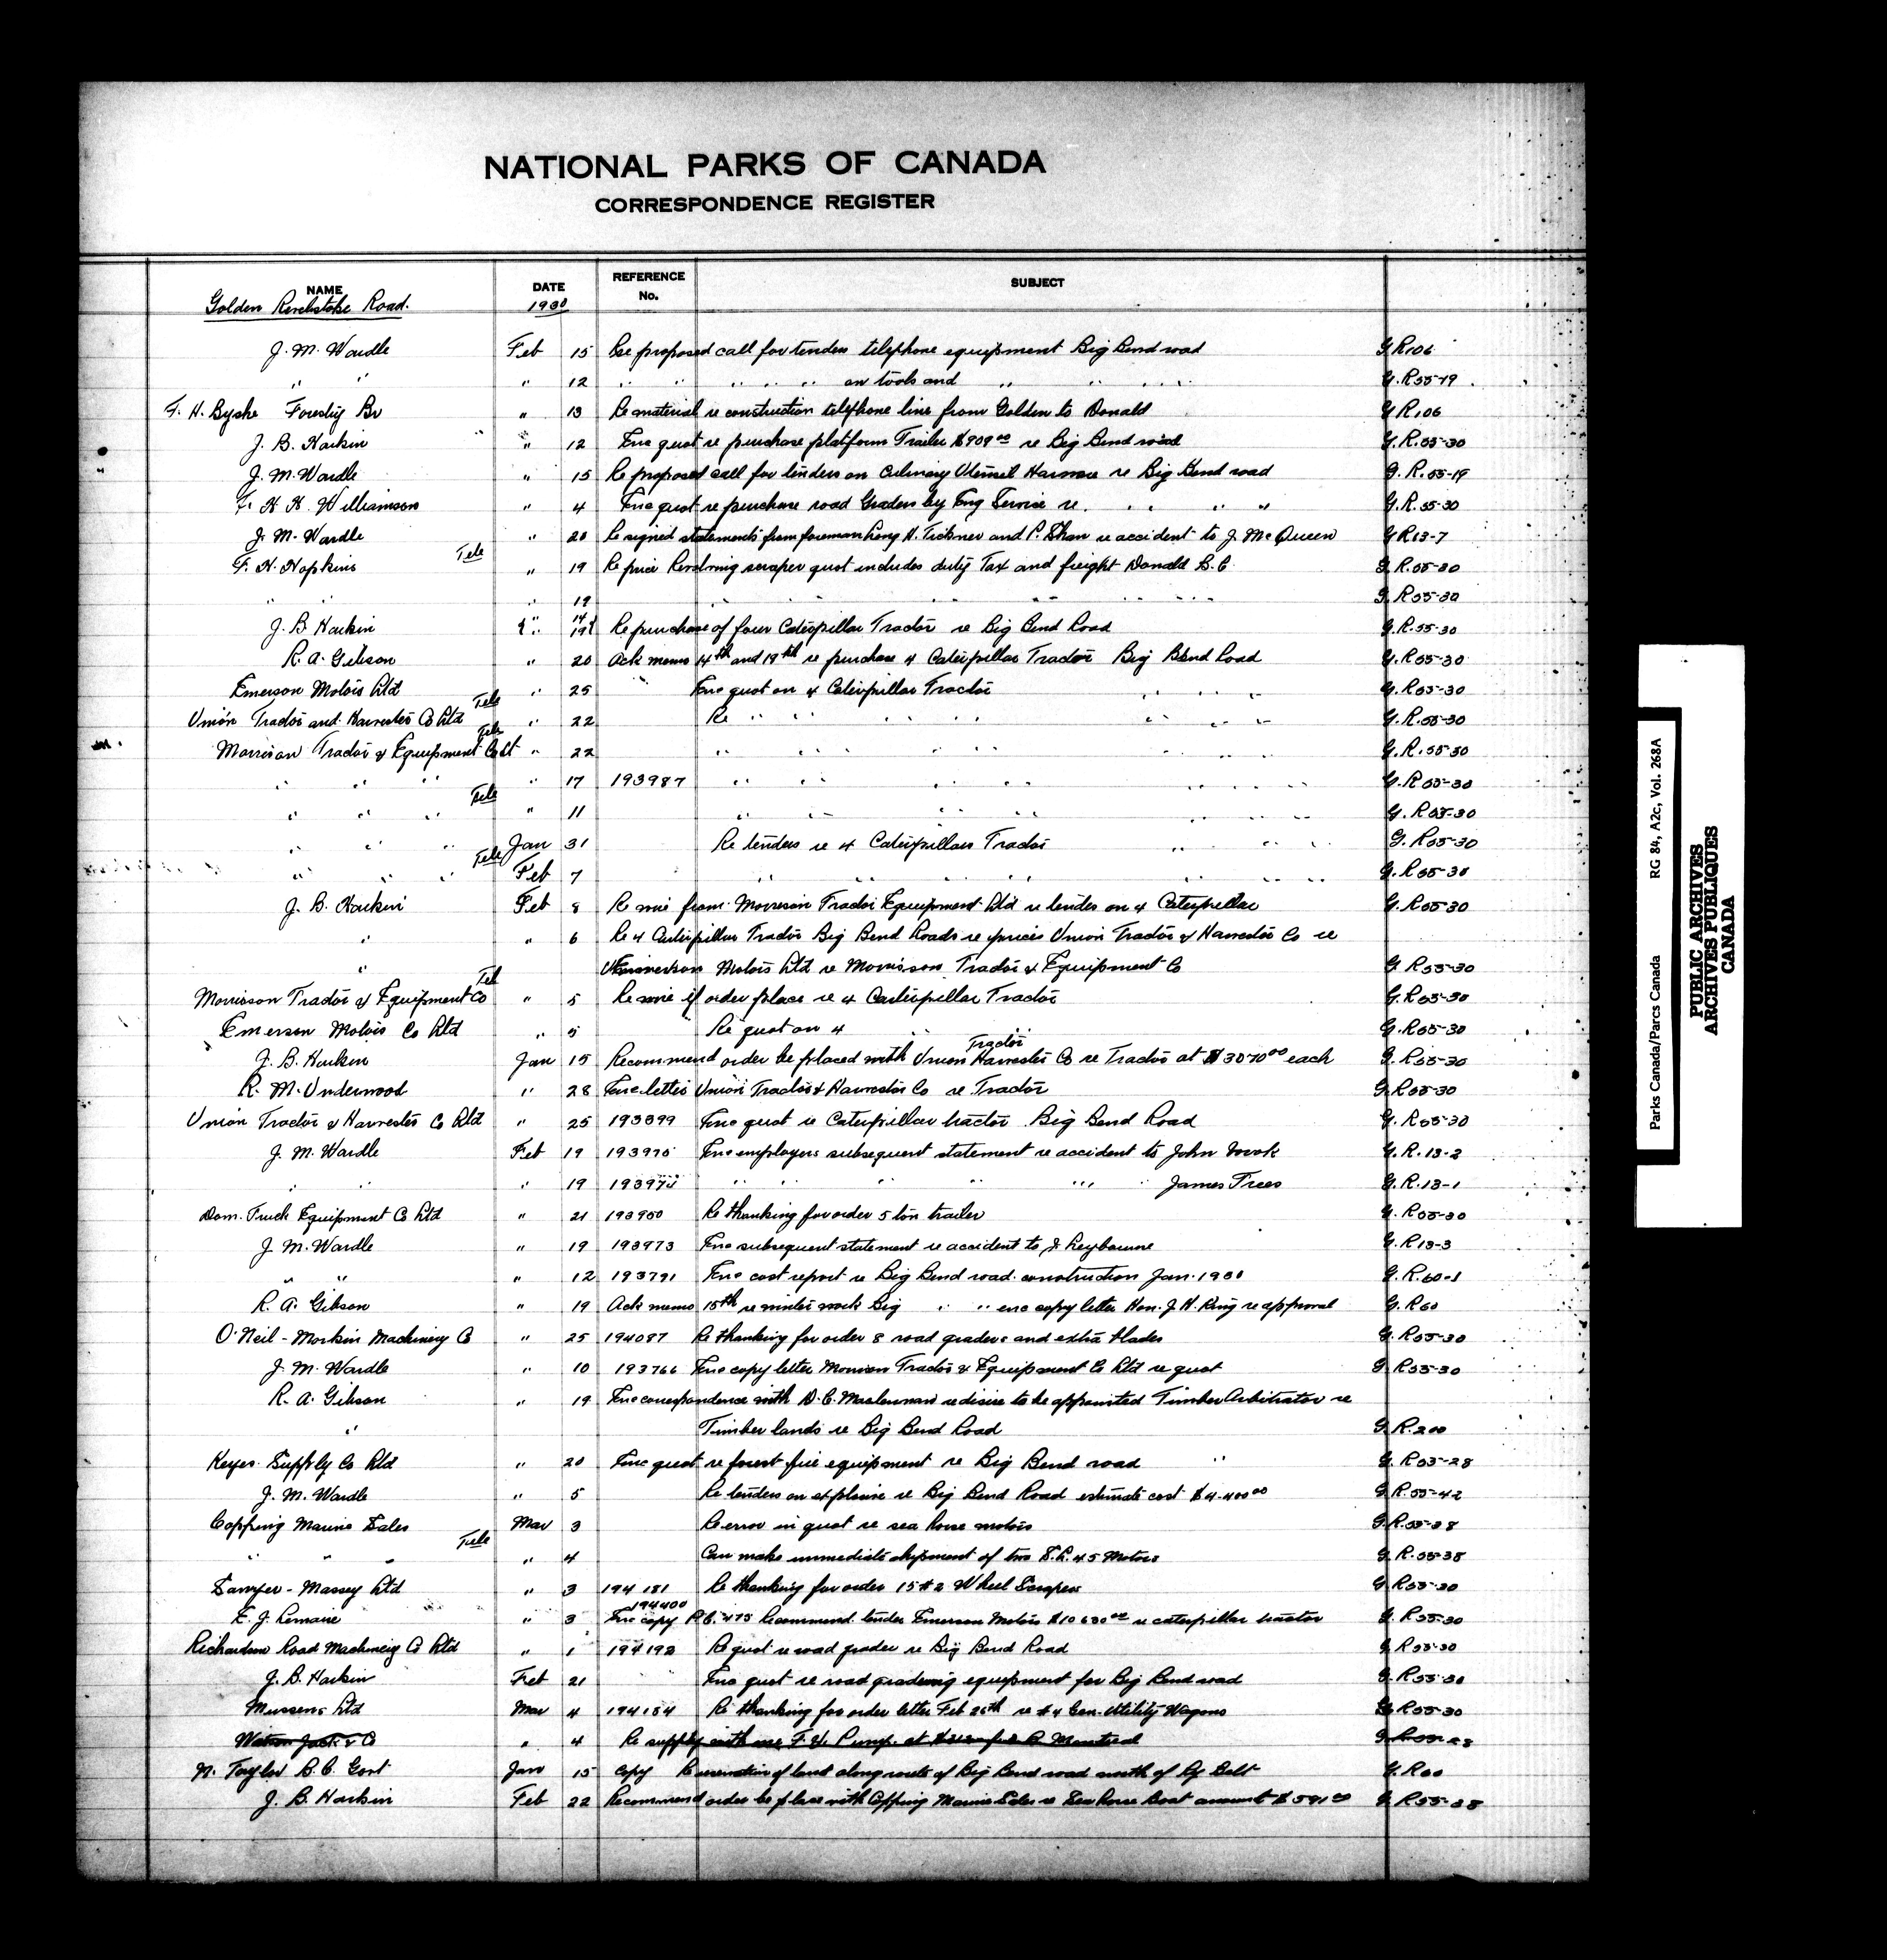 NATIONAL PARKS OF CANADA
CORRESPONDENCE REGISTER
NAME DATE REFERENCE No. SUBJECT
Golden Revelstoke Road. 1930
J. M. Wardle Feb 15 Re proposed call for tenders telephone equipment Big Bend road G.R106
" " " 12 " " " " " on tools and " " " " G.R55-19
F. H. Byshe Forestry Br " 13 Re material re construction telephone line from Golden to Donald G R106
J. B. Harkin " 12 Enc quot re purchase platform Trailer $909.00 re Big Bend road G.R.55-30
J. M. Wardle " 15 Re proposed call for tenders on Culinary Utensil Harness re Big Bend road G.R.55-19
F. H. H. Williamson " 4 Enc quot re purchase road Graders by Eng Service re " " " " G.R.55-30
J. M. Wardle " 20 Re signed statements from foreman H. Tickner and P. Shaw re accident to J. McQueen G R13-7
F. H. Hopkins Tele " 19 Re price scraper quot includes duty Tax and freight Donald B.C G.R55-30
" " " 19 " " " " " " " G.R55-30
J. B. Harkin " 14 19 Re purchase of four Caterpillar Tractor re Big Bend Road G.R.55-30
R. A. Gibson " 20 Ack memo 14th and 19th re purchase 4 Caterpillar Tractor Big Bend Road G.R55-30
Emerson Motors Ltd " 25 Enc quot on 4 Caterpillar Tractor " " " G.R55-30
Union Tractor and Harvester Co Ltd Tele " 22 Re " " " " " " " " G.R.55-30
Morrison Tractor & Equipment Co Lt Tele " 22 " " " " " " " " G.R.55-30
" " " " 17 193987 " " " " " " " " G.R55-30
" " " Tele " 11 " " " " " " " G.R55-30
" " " Jan 31 Re tenders re 4 Caterpillar Tractor " " " G.R55-30
" " " " Tele Feb 7 " " " " " " " " G.R55-30
J. B. Harkin Feb 8 Re wire from Morrison Tractor Equipment Ltd re tender on 4 Caterpillar G.R55-30
" " 6 Re 4 Caterpillar Tractor Big Bend Roads re prices Union Tractor & Harvester Co re
" Emmerson Motors Ltd re Morrison Tractor & Equipment Co G.R55-30
Morrison Tractor & Equipment Co Tel " 5 Re wire if order place re 4 Caterpillar Tractor G.R55-30
Emerson Motors Co Ltd " 5 Re quot on 4 " " G.R55-30
J. B. Harkin Jan 15 Recommend order be placed with Union Tractor Harvester Co re Tractor at $3070.00 each G.R55-30
R. M. Underwood " 28 Enc letter Union Tractor & Harvester Co re Tractor G.R55-30
Union Tractor & Harvester Co Ltd " 25 193899 Enc quot re Caterpillar tractor Big Bend Road G.R55-30
J. M. Wardle Feb 19 193975 Enc employers subsequent statement re accident to John G.R.13-2
" " " 19 193974 " " " " " " James Trees G.R.13-1
Dom. Truck Equipment Co Ltd " 21 193950 Re thanking for order 5 ton trailer G.R55-30
J. M. Wardle " 19 193973 Enc subsequent statement re accident to J. Leybourne G.R13-3
" " " 12 193791 Enc cost report re Big Bend road construction Jan. 1930 G.R.60-1
R. A. Gibson " 19 Ack memo 15th re winter work Big " " enc copy letter Hon. J. H. King re approval G.R60
O'Neil-Morkin Machinery Co " 25 194087 Re thanking for order 8 road graders and extra blades G.R55-30
J. M. Wardle " 10 193766 Enc copy letter Morrison Tractor & Equipment Co Ltd re quot G.R55-30
R. A. Gibson " 19 Enc correspondence with D. C. Maclennan re desire to be appointed Timber Arbitrator re
" Timber lands re Big Bend Road G.R.200
Keyes Supply Co Ltd " 20 Enc quot re forest fire equipment re Big Bend road " G.R55-28
J. M. Wardle " 5 Re tenders on explosive re Big Bend Road estimate cost $4.400.00 G.R.55-42
Copping Marine Sales Mar 3 Re error in quot re sea horse motors G.R.55-38
" " " Tele " 4 Can make immediate shipment of two motors G.R.55-38
Sawyer-Massey Ltd " 3 194181 Re thanking for order 15 #2 Wheel Scraper G.R55-30
E. J. Lemaire " 3 194400 Enc copy P.C. 475 Recommend tender Emerson Motors $10680.00 re caterpillar tractor G.R55-30
Richardson Road Machinery Co Ltd " 1 194192 Re quot re road grader re Big Bend Road G.R55-30
J. B. Harkin Feb 21 Enc quot re road grading equipment for Big Bend road G.R55-30
Mussens Ltd Mar 4 194184 Re thanking for order letter Feb 26th re #4 Gen. Utility Wagons G.R55-30
Watson Jack & Co " 4 Re supply with one F. Pump at Montreal
N. Taylor B.C. Govt Jan 15 copy Reservation of land along route of Big Bend road north of Ry Belt G.R60
J. B. Harkin Feb 22 Recommend order be place with Copping Marine Sales re Sea Horse Boat amount $591.00 G.R55-38
Parks Canada/Parcs Canada RG 84, A2c, Vol. 268A
PUBLIC ARCHIVES
ARCHIVES PUBLIQUES
CANADA